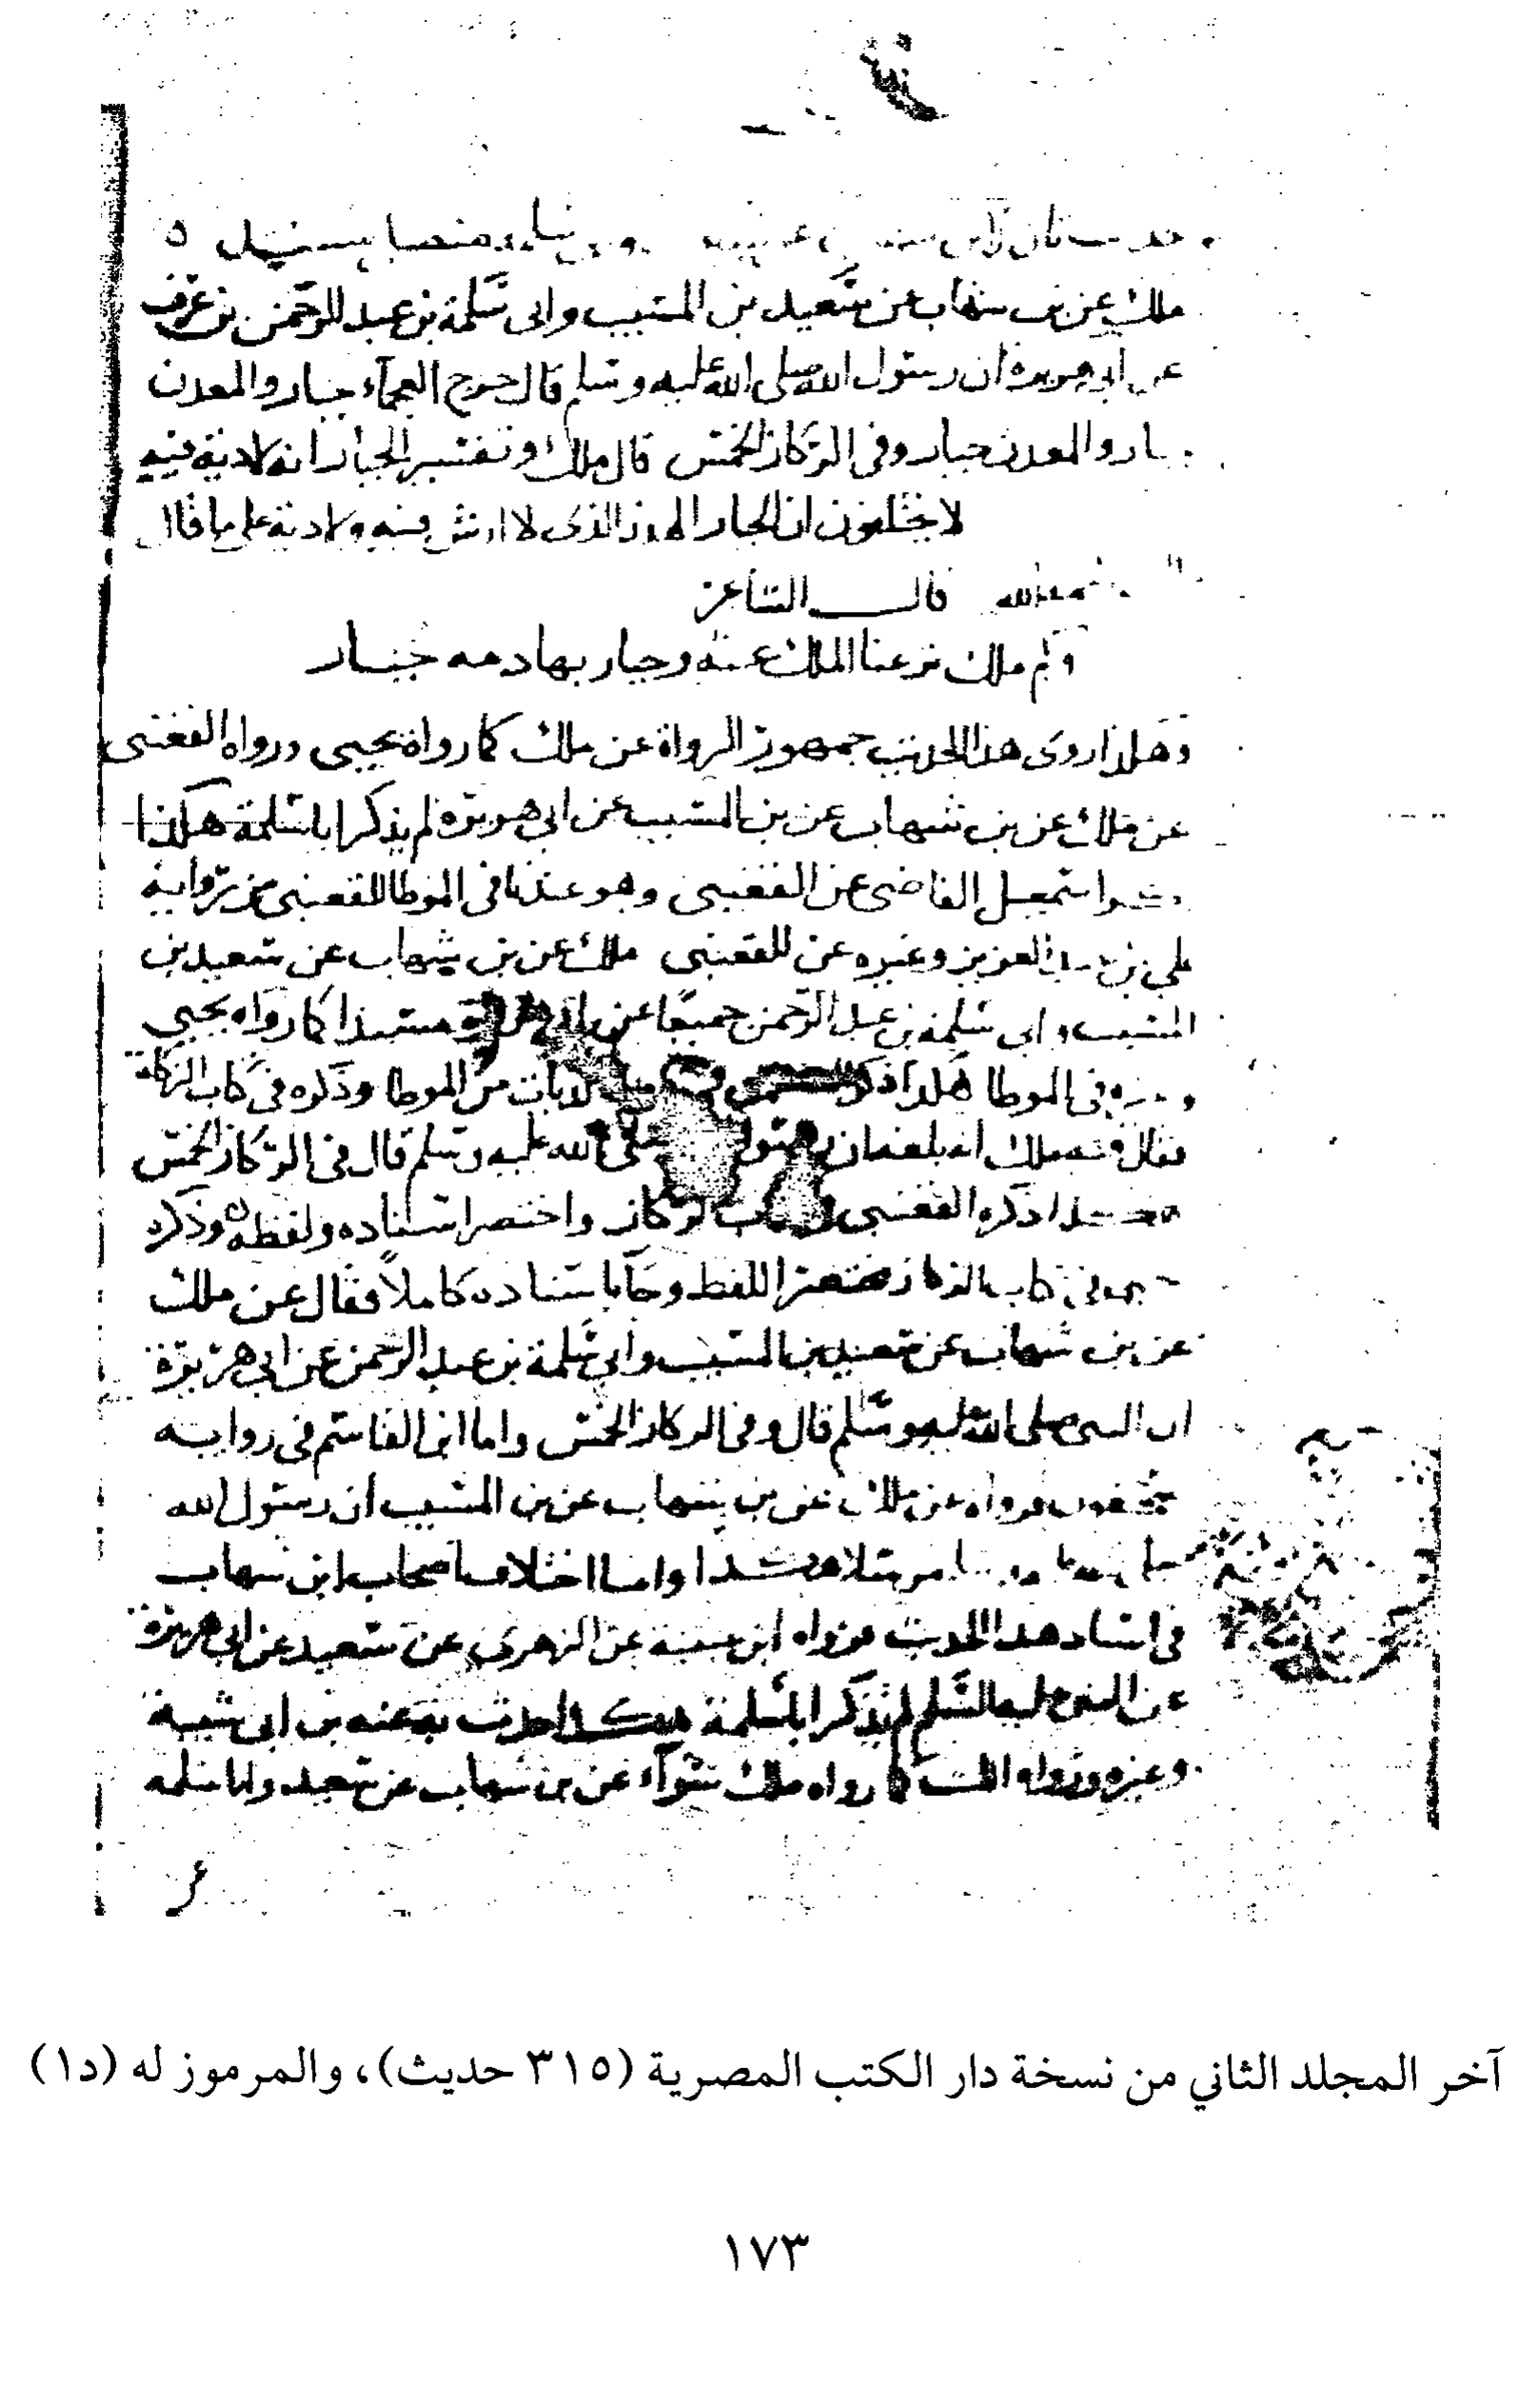 ملك عن بن شهاب عن سعيد بن المسيب وابى سلمة بن عبد الرحمن بن عوف
عن ابى هريرة ان رسول الله صلى الله عليه وسلم قال جرح العجماء جبار والمعدن
والمعدن جبار وفى الركاز الخمس قال ملك وتفسير الجبار انه لا دية فيه
لا يختلفون ان الجبار الهدر الذى لا ارش فيه ولا دية على ما قال
الله قال الشاعر
وكم ملك نزعنا الملك عنه وجبار بها دمه جبار
وهكذا روى هذا الحديث جمهور الرواة عن ملك كما رواه يحيى ورواه القعنبى
عن ملك عن بن شهاب عن بن المسيب عن ابى هريرة لم يذكر ابا سلمة هكذا
اسمعيل القاضى عن القعنبى وهو عندنا فى الموطا للقعنبى من رواية
على بن عبد العزيز وغيره عن القعنبى ملك عن بن شهاب عن سعيد بن
المسيب وابى سلمة بن عبد الرحمن جميعا عن ابى مسندا كما رواه يحيى
وغيره فى الموطا هكذا ذكره من الموطا وذكره فى كتاب الزكاة
فقال فيه ملك انه بلغه ان رسول الله صلى الله عليه وسلم قال فى الركاز الخمس
ذكره القعنبى الركاز واختصر اسناده ولفظه وذكره
فى كتاب مختصر اللفظ وجا باسناده كاملا فقال عن ملك
عن بن شهاب عن سعيد بن المسيب وابى سلمة بن عبد الرحمن عن ابى هريرة
ان النبى صلى الله عليه وسلم قال وفى الركاز الخمس واما ابن القاسم فى رواية
سحنون فرواه عن ملك عن بن شهاب عن بن المسيب ان رسول الله
مرسلا هكذا واما اختلاف اصحاب ابن شهاب
فى اسناد هذا الحديث فرواه ابن عيينة عن الزهرى عن سعيد عن ابى هريرة
عن النبى عليه السلم لم يذكر ابا سلمة هكذا حدث به عنه بن ابى شيبة
وغيره ورواه الليث كما رواه ملك سواء عن بن شهاب عن سعيد وابى سلمه
آخر المجلد الثاني من نسخة دار الكتب المصرية (٣١٥ حديث)، والمرموز له (د١)
١٧٣